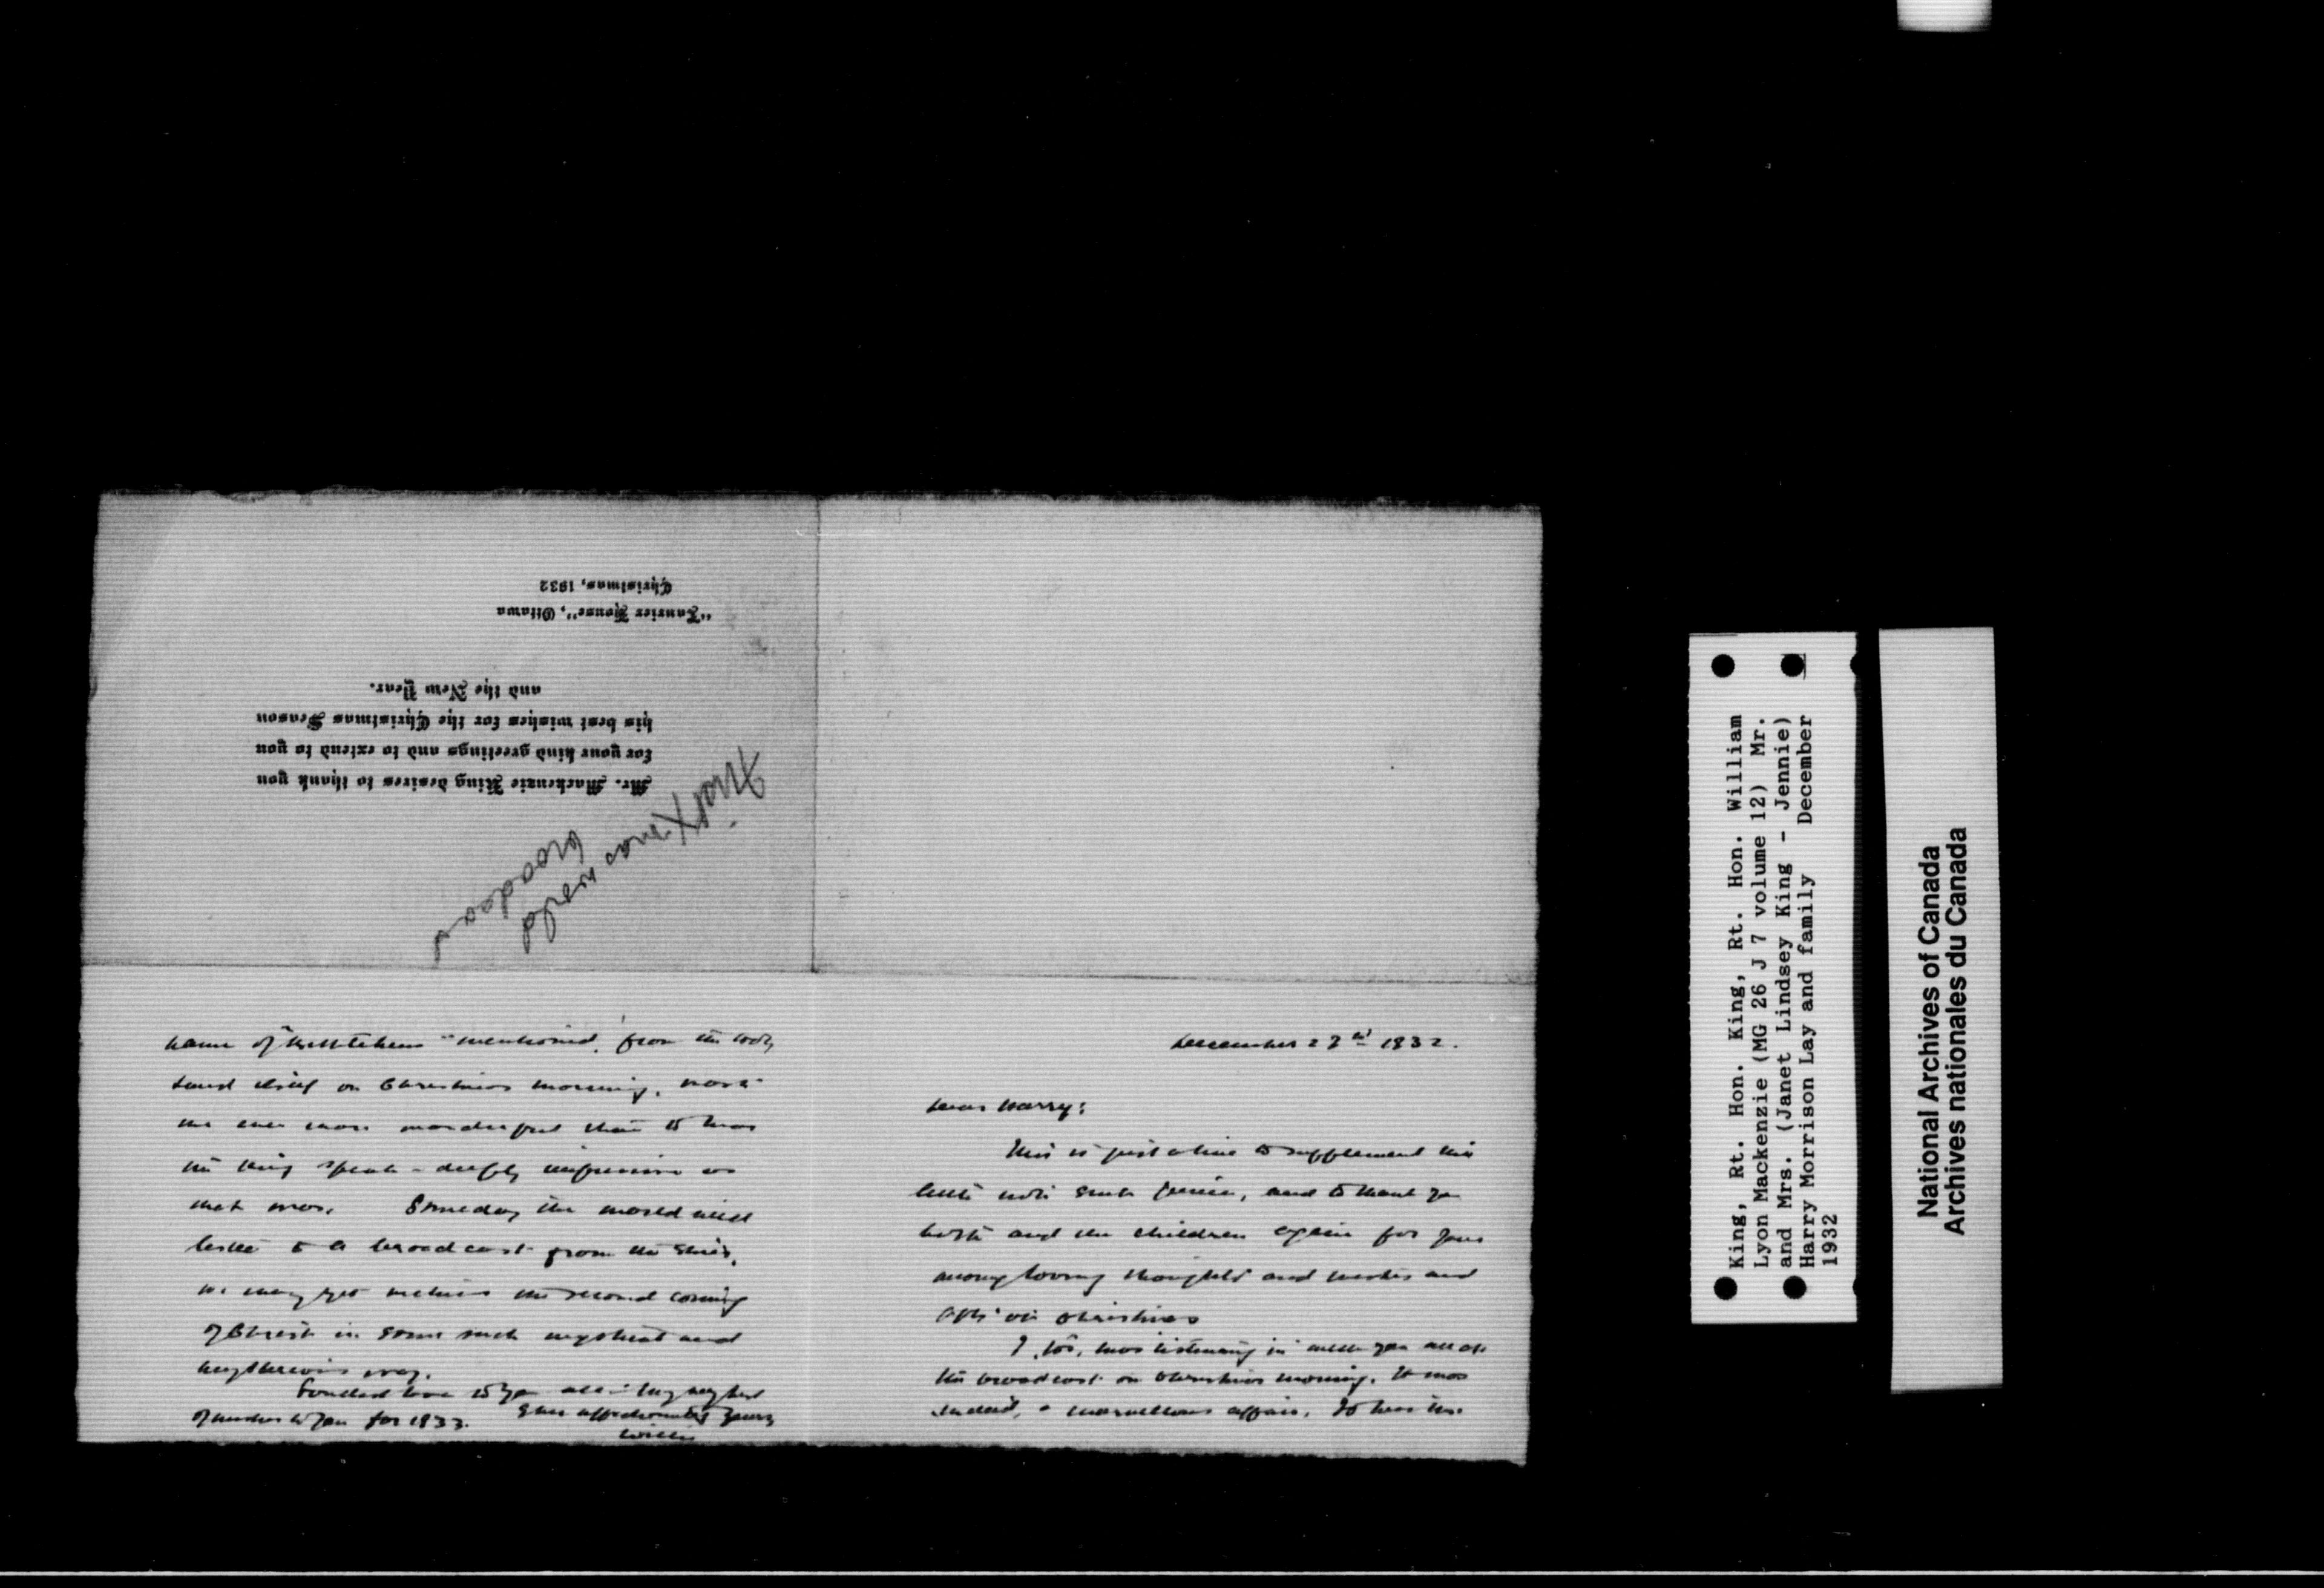 Mr. Mackenzie King desires to thank you
for your kind greetings and to extend to you
his best wishes for the Christmas Season
and the New Year.
"Laurier House", Ottawa
Christmas, 1932
broadcast
December 1932.
Dear Harry:
This is just a line to supplement the
little note sent Jennie, and to thank you
both and the children again for your
many loving thoughts and wishes and
gifts at Christmas
I, too, was listening in with you all at
the broadcast on Christmas morning. It was
indeed, a marvellous affair. To hear the
name of "Bethlehem" mentioned, from the Holy
Land itself on Christmas morning, was to
me even more wonderful than to hear
the King speak - deeply impressive as
that was. Someday the world will
listen to a broadcast from the skies.
We may yet witness the second coming
of Christ in some such mystical and
mysterious way.
Fondest love to you all - the very best
of wishes to you for 1933. Ever affectionately yours,
Willie
King, Rt. Hon. King, Rt. Hon. William
Lyon Mackenzie (MG 26 J 7 volume 12) Mr.
and Mrs. (Janet Lindsey King - Jennie)
Harry Morrison Lay and family December
1932
National Archives of Canada
Archives nationales du Canada